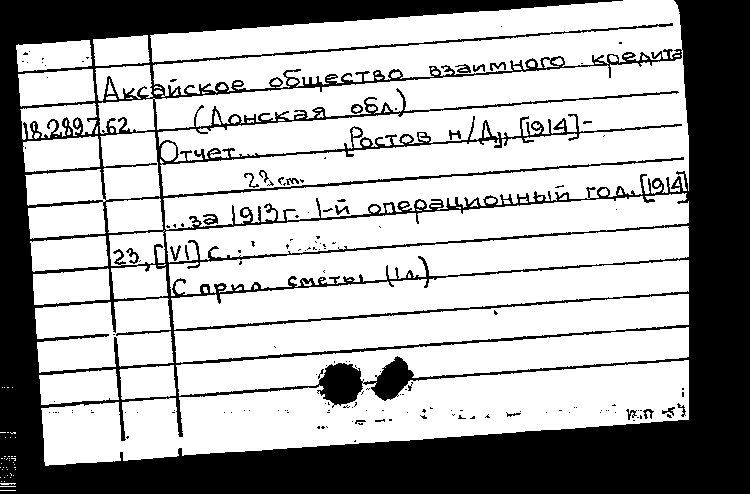 Аксайское общество взаимного кредита
18.289.7.62. (Донская обл.)
Отчет... [Ростов н/Д], [1914]-
23 cm.
...за 1913г. 1-й операционный год. [1914]
23, [VI] с.;
С прил. сметы (1л.)